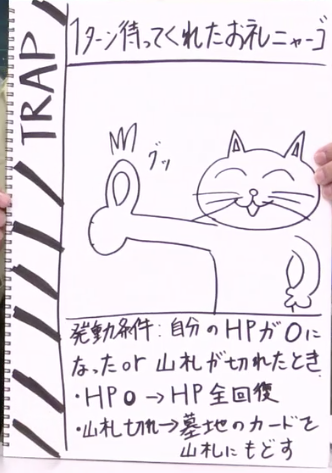 TRAP
1ターン待ってくれたお礼ニャーゴ
グッ
発動条件:自分のHPが0に
なったor 山札が切れたとき
・HP0→HP全回復
・山札切れ→墓地のカードを
山札にもどす